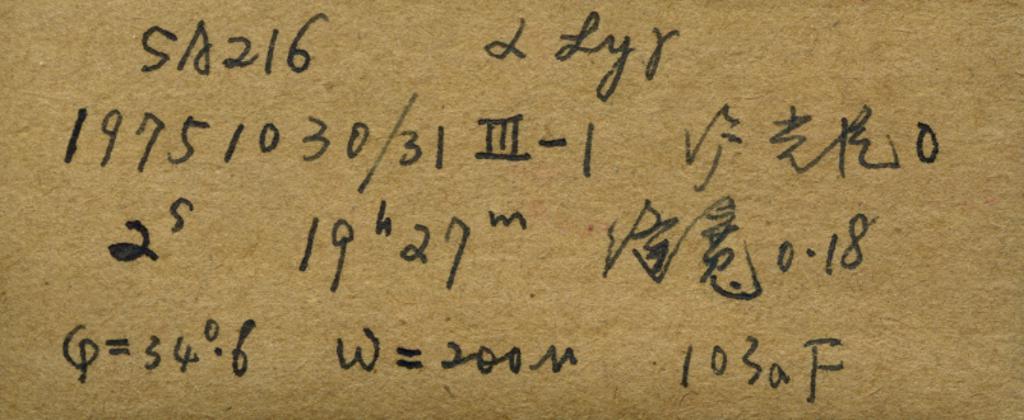 SA216 α Lyr
1975 10 30/31 III-1 光 0
2ˢ 19ʰ27ᵐ 缝宽 0.18
φ=34°.6 W=200μ 103aF